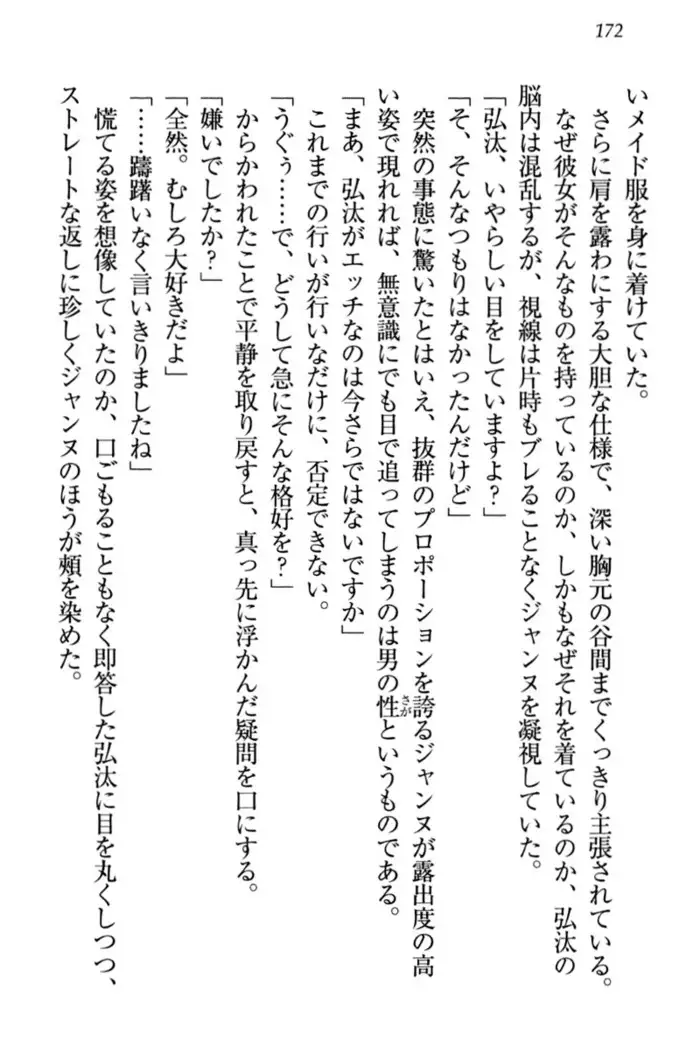 172
いメイド服を身に着けていた。
さらに肩を露わにする大胆な仕様で、深い胸元の谷間までくっきり主張されている。
なぜ彼女がそんなものを持っているのか、しかもなぜそれを着ているのか、弘汰の
脳内は混乱するが、視線は片時もブレることなくジャンヌを凝視していた。
「弘汰、いやらしい目をしていますよ？」
「そ、そんなつもりはなかったんだけど」
突然の事態に驚いたとはいえ、抜群のプロポーションを誇るジャンヌが露出度の高
い姿で現れれば、無意識にでも目で追ってしまうのは男の性さがというものである。
「まあ、弘汰がエッチなのは今さらではないですか」
これまでの行いが行いなだけに、否定できない。
「うぐぅ……で、どうして急にそんな格好を？」
からかわれたことで平静を取り戻すと、真っ先に浮かんだ疑問を口にする。
「嫌いでしたか？」
「全然。むしろ大好きだよ」
「……躊躇いなく言いきりましたね」
慌てる姿を想像していたのか、口ごもることもなく即答した弘汰に目を丸くしつつ、
ストレートな返しに珍しくジャンヌのほうが頬を染めた。